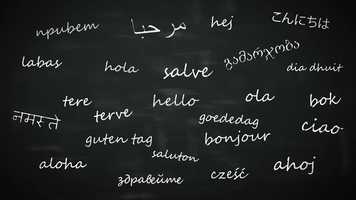 привет
مرحبا
hej
こんにちは
labas
hola
salve
გამარჯობა
dia dhuit
tere
hello
ola
bok
नमस्ते
terve
goededag
ciao
guten tag
bonjour
aloha
saluton
ahoj
здравейте
cześć